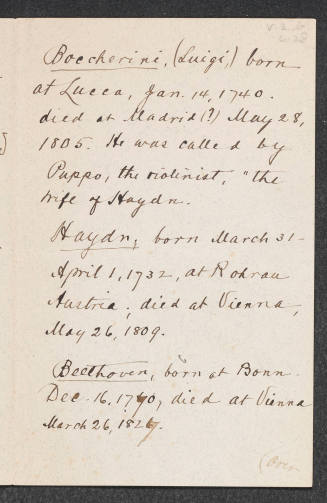 Boccherini, (Luigi,) born
at Lucca, Jan. 14, 1740.
died at Madrid (?) May 28,
1805. He was called by
Puppo, the violinist, "the
wife of Haydn.
Haydn, born March 31 -
April 1, 1732, at Rohrau
Austria; died at Vienna,
May 26, 1809.
Beethoven, born at Bonn
Dec. 16, 1770, died at Vienna
March 26, 1827.
(Over